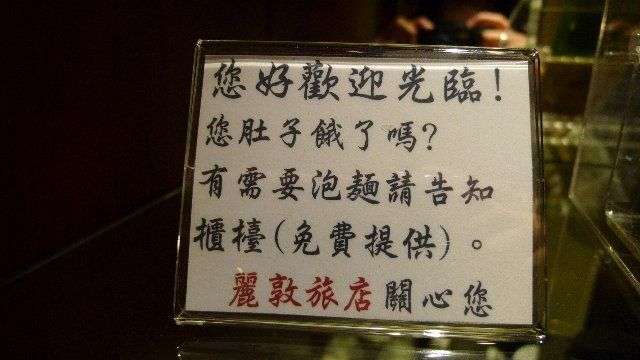 您好歡迎光臨!
您肚子餓了嗎?
有需要泡麵請告知
櫃檯(免費提供)。
麗敦旅店關心您